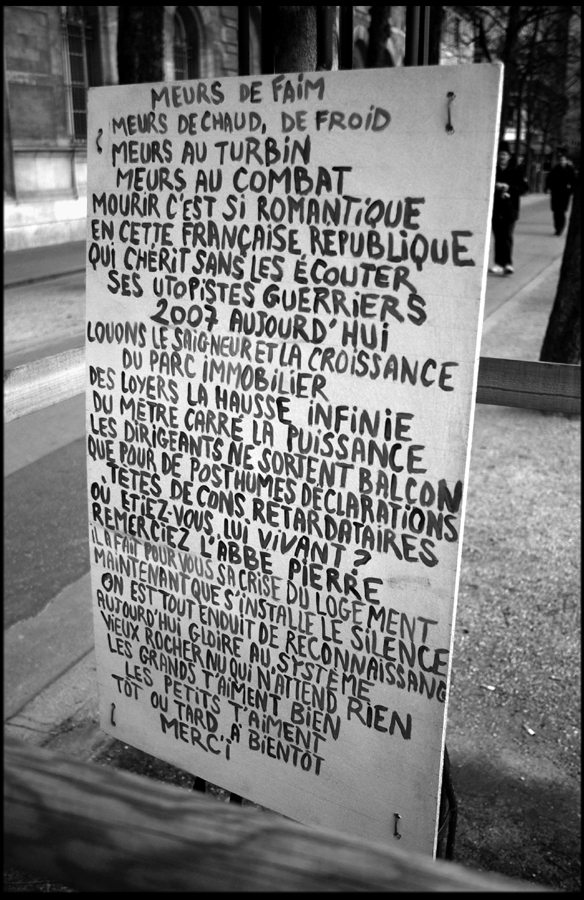 MEURS DE FAIM
MEURS DE CHAUD, DE FROID
MEURS AU TURBIN
MEURS AU COMBAT
MOURIR C'EST SI ROMANTIQUE
EN CETTE FRANÇAISE REPUBLIQUE
QUI CHÉRIT SANS LES ÉCOUTER
SES UTOPISTES GUERRIERS
2007 AUJOURD'HUI
LOUONS LE SAIGNEUR ET LA CROISSANCE
DU PARC IMMOBILIER
DES LOYERS LA HAUSSE INFINIE
DU MÈTRE CARRÉ LA PUISSANCE
LES DIRIGEANTS NE SORTENT BALCON
QUE POUR DE POSTHUMES DÉCLARATIONS
TÊTES DE CONS RETARDATAIRES
OÙ ÉTIEZ-VOUS LUI VIVANT ?
REMERCIEZ L'ABBÉ PIERRE
IL A FAIT POUR VOUS SA CRISE DU LOGEMENT
MAINTENANT QUE S'INSTALLE LE SILENCE
ON EST TOUT ENDUIT DE RECONNAISSANC
AUJOURD'HUI GLOIRE AU SYSTEME
VIEUX ROCHER NU QUI N'ATTEND RIEN
LES GRANDS T'AIMENT BIEN
LES PETITS T'AIMENT
TÔT OU TARD, À BIENTÔT
MERCI